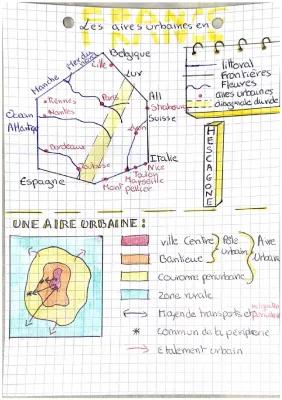 FRANCE
Les aires urbaines en
Belgique
Mer du Nord
Lille
Lux
Manche
Paris
All
Strasbourg
Rennes
Nantes
Suisse
Océan
Atlantique
Lyon
Bordeaux
Italie
Nice
Toulouse
Toulon
Marseille
Montpellier
Espagne
littoral
Frontières
Fleuves
aires urbaines
diagonale du vide
HESCAGONE
UNE AIRE URBAINE:
ville Centre } Pôle Aire
Banlieue urbain Urbaine
Couronne periurbaine
Zone rurale
Moyen de transports et
commun de la periferie
etalement urbain